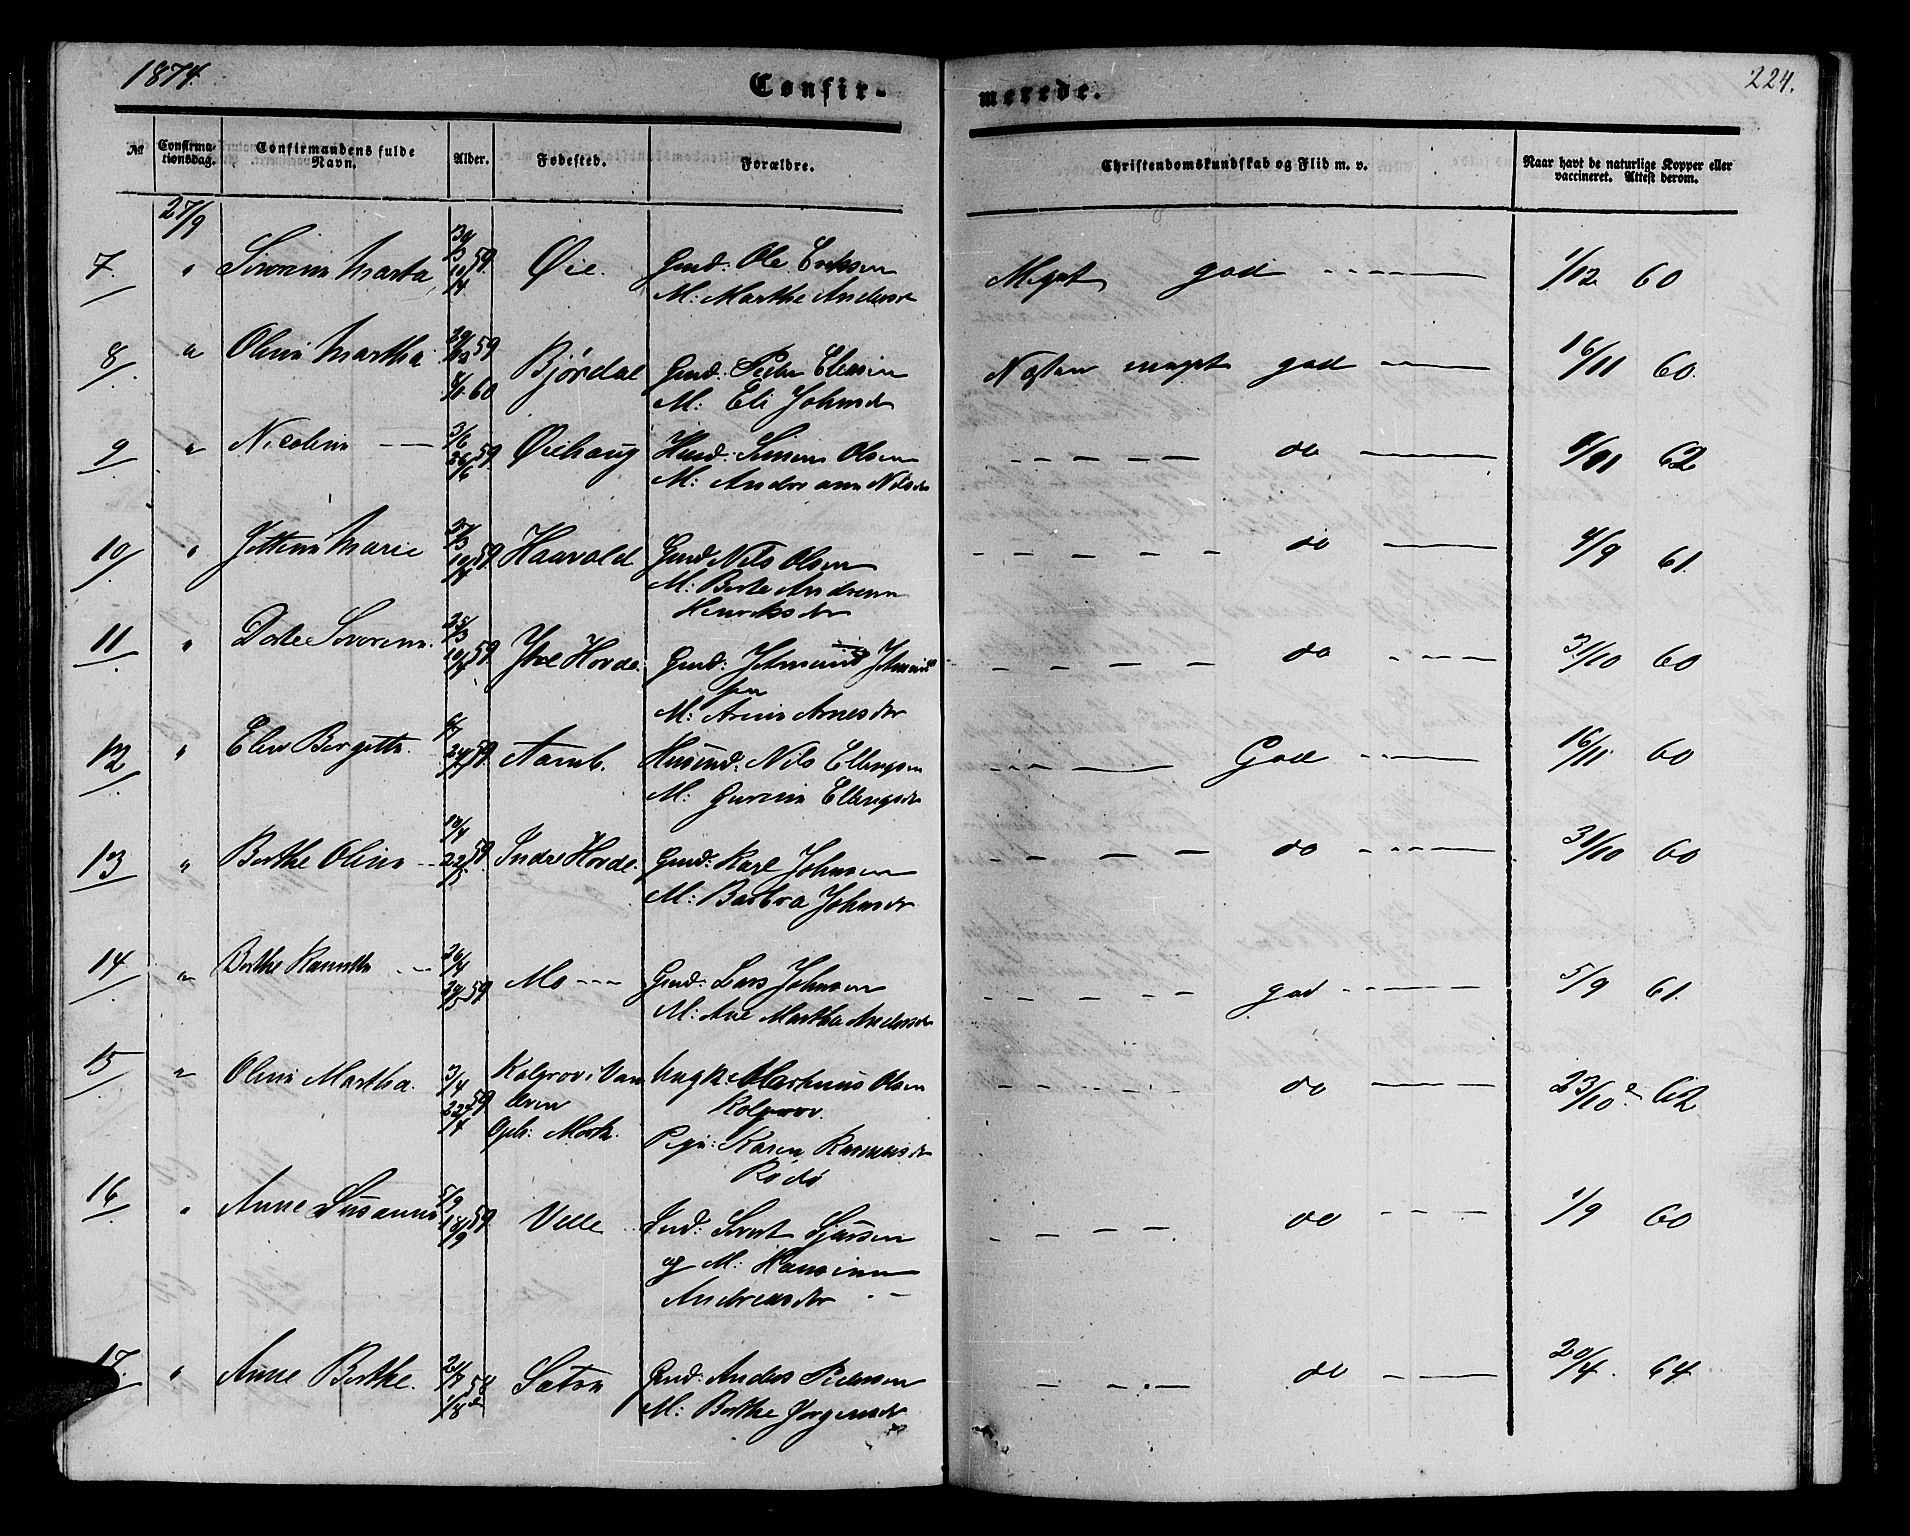 1874.
Confir-
merede.
224.
№
Confirma-
tionsdag.
Confirmandens fulde
Navn.
Alder.
Fødested.
Forældre.
Christendomskundskab og Flid m. v.
Naar havt de naturlige Kopper eller
vaccineret. Attest derom.
27/9
7. " Severine Marta 59 Øie. Gmd: Ole Eriksen Meget god 1/12 60
M: Marthe Andersd
8. " Oline Martha 59 Bjørdal Gmd: Peder Eliasen Næsten meget god 16/11 60.
8/1 60 M: Eli Johnsdr
9 " Nicoline 3/6 59 Øiehaug Husmd: Simen Olsen do 62
26/6 M: Andrianne Nilsdr
10 " Jettine Marie 59 Haavold Gmd. Nils Olsen do 4/9 61.
M: Berte Andrine
Henriksdr
11 " Dorte Severine. 59 Ytre Horde. Gmd: Johnsen do 31/10 60
M: Arnesdr
12 " Elen Bergitte. 59 Aamb. Husmd: Nils Ellingsen God 16/11 60
M: Gurine Ellingsdr
13 " Berthe Oline 10/4 59 Indre Horde. Gmd: Karl Johnsen do 31/10 60
22/5 M: Barbra Johnsdr
14 " Berthe 26/4 59 Mo Gmd: Lars Johnsen god 5/9 61.
29/5 M: Ane Martha Andersdr
15 " Oline Martha. 3/4 59 Kolgrov i Van Ungk: Martinus Olsen do 23/10 62
22/4 elven Kolgrov.
Oph: Mork. Pige: Karen Rasmusdr
Rødø
16 " Anne Susanne 5/9 59 Velle Gmd: Sivert Sjursen do 1/9 60
18/9 og M: Hansine
Andreasdr
17. " Anne Berthe. 21/7 58 Sætre Gmd: Anders Pedersen do 20/4 64
1/8 M: Berthe Jørgensdr